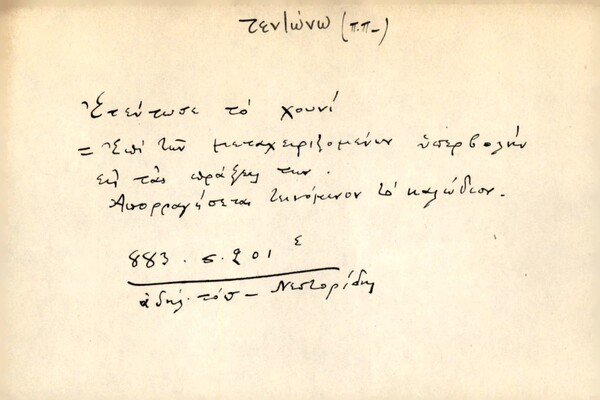 τεντώνω (π.π-)
Ἐτέντωσε τό χουνί
= Ἐπί τῶν μεταχειριζομένων ὑπερβολήν
εἰς τάς πράξεις των.
Ἀπορραγήσεται τεινόμενον τό καλώδιον.
883. σ. 201 Σ
ἀδήλ. τόπ - Νεστορίδης